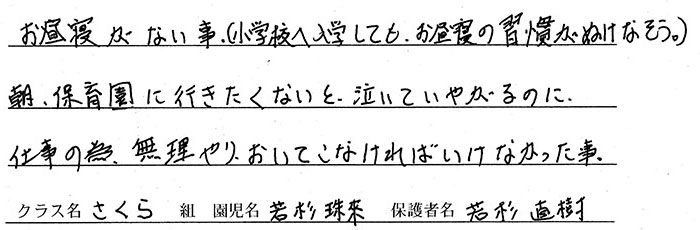 お昼寝がない事、(小学校へ入学しても、お昼寝の習慣がぬけなそう。)
朝、保育園に行きたくないと、泣いていやがるのに、
仕事の為、無理やり、おいてこなければいけなかった事。
クラス名 さくら 組 園児名 若杉 珠来 保護者名 若杉 直樹